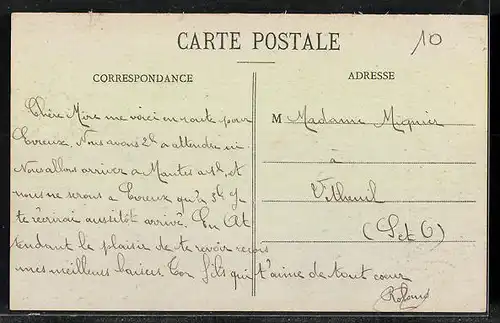 CARTE POSTALE
10
CORRESPONDANCE
ADRESSE
Chère Mère me voici en route pour
Evreux. Nous avons 2h a attendre ici
Nous allons arriver a Mantes a 1h, et
nous ne serons a Evreux qu'a 3h Je
te récrirai aussitôt arrivé. En At
tendant le plaisir de te revoir reçois
mes meilleurs baisers. Ton fils qui t'aime de tout coeur
M Madame Mignier
à
Vetheuil
(S et O)